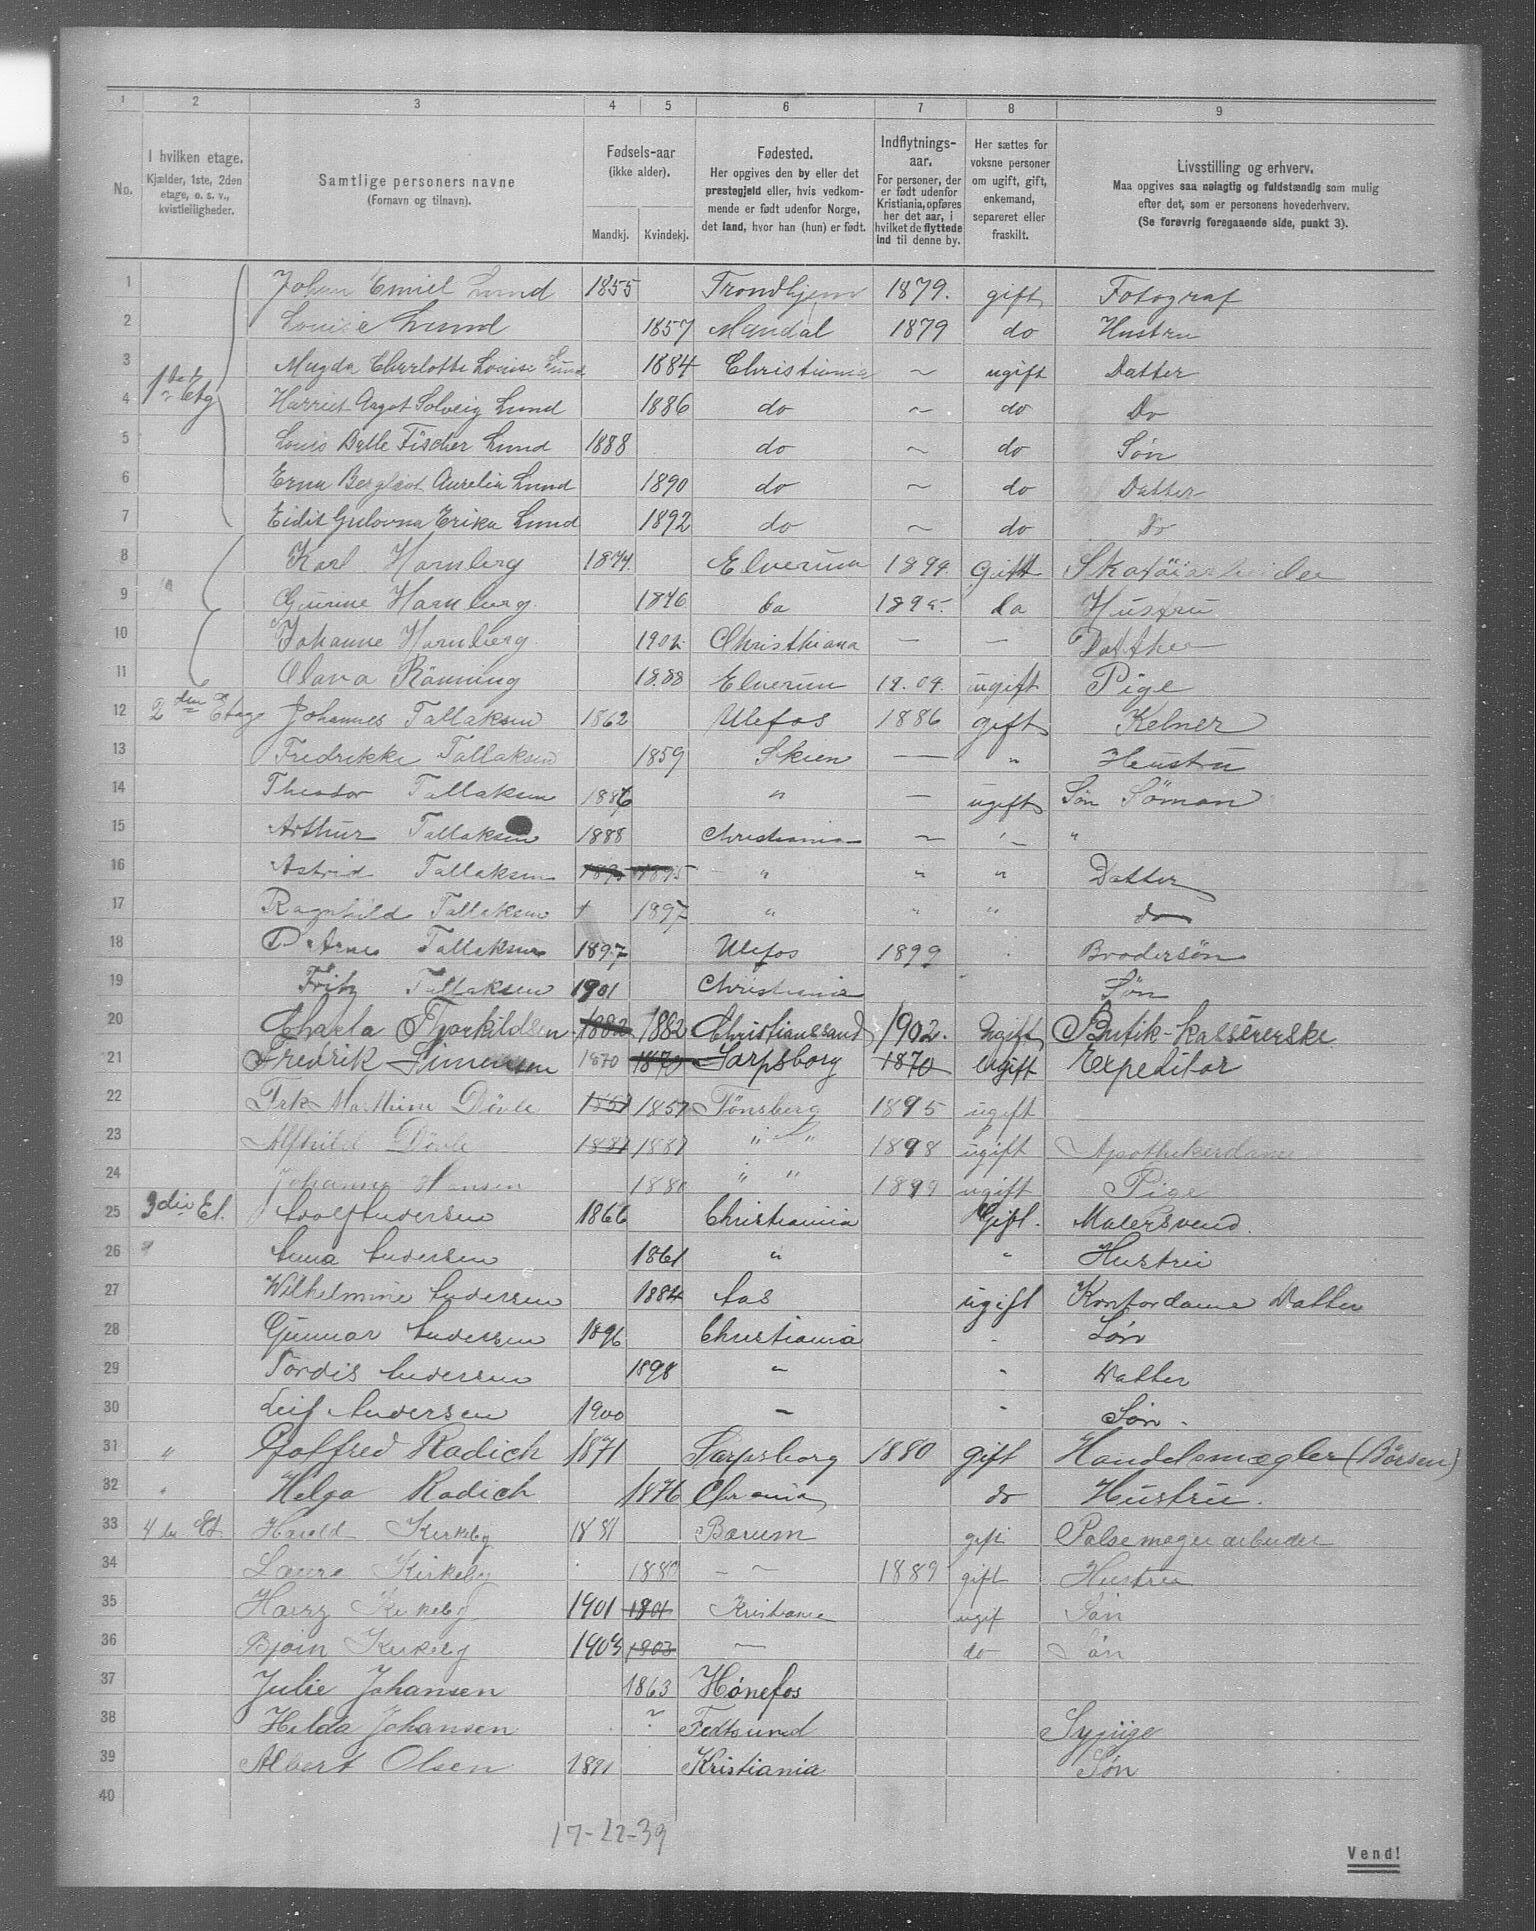 1 2 3 4 5 6 7 8 9
No. I hvilken etage. Kjælder, 1ste, 2den etage, o. s. v., kvistleiligheder. Samtlige personers navne (Fornavn og tilnavn). Fødsels-aar (ikke alder). Mandkj. Kvindekj. Fødested. Her opgives den by eller det prestegjeld eller, hvis vedkommende er født udenfor Norge, det land, hvor han (hun) er født. Indflytnings-aar. For personer, der er født udenfor Kristiania, opføres her det aar, i hvilket de flyttede ind til denne by. Her sættes for voksne personer om ugift, gift, enkemand, separeret eller fraskilt. Livsstilling og erhverv. Maa opgives saa nøiagtig og fuldstændig som mulig efter det, som er personens hovederhverv. (Se forøvrig foregaaende side, punkt 3).
1 Johan Emiel Lund 1855 Trondhjem 1879. gift Fotograf
2 Louise Lund 1857 Mandal 1879 do Hustru
3 Magda Charlotte Louise Lund 1884 Christiania ~ ugift Datter
1ste Etg
4 Harriet Aagot Solveig Lund 1886 do ~ do Do
5 Louis Fischer Lund 1888 do ~ do Søn
6 Erna Bergliot Aurelia Lund 1890 do ~ do Datter
7 Eidis Erika Lund 1892 do ~ do Do
8 Karl Hamberg 1874. Elverum 1899. Gift
9 " Gurine Hamberg. 1876 Do 1895. do Hustru
10 Johanne Hamberg. 1902. Christhiana — — Datther
11 Olava Rönning 1888 Elverum 1904. ugift Pige
12 2den Etage Johannes Tallaksen 1862 Ulefos 1886 gift Kelner
13 Fredrikke Tallaksen 1859 Skien — " Heustru
14 Theodor Tallaksen 1886 " — ugift Søn Söman
15 Arthur Tallaksen 1888 Christiania ~ "
16 Astrid Tallaksen 1895 1895 " " " Datter
17 Ragnhild Tallaksen 1897 " " " do
18 Arne Tallaksen 1897 Ulefos 1899 Brodersön
19 Fritz Tallaksen 1901 Christiania Søn
20 Charla Tjorkildsen 1882 1882 Christianssand 1902. Ugift Butik-kassererske
21 Fredrik Simensen 1870 1870 Sarpsborg 1870 Ugift Expeditør
22 Frk Døvle 1857 1857 Tønsberg 1895 ugift
23 Alfhild Døvle 1887 1887 " " 1898 ugift Apothekerdame
24 Johanna Hansen 1880 " " 1899 ugift Pige
25 3die Et. Adolf Andersen 1866 Christiania Gift. Malersvend.
26 " Anna Andersen 1861 " " Hustru
27 Wilhelmine Andersen 1884 Aas ugift Kontordame Datter
28 Gunnar Andersen 1896 Christiania - Søn
29 Tordis Andersen 1898 " - Datter
30 Leif Andersen 1900 - Søn -
31 " Gotfred Radich 1871 Sarpsborg 1880 gift Handelsmægler (Børsen)
32 " Helga Radich 1876 Chrania do Hustru.
33 4de Et Harald Kirkeby 1881 Bærum gift Pølsemager arbeider
34 Laura Kirkeby - ~ 1889 gift Hustru
35 Harry Kirkeby 1901 1901 Kristiania ugif Søn
36 Bjørn Kirkeby 1903 1903 — do Søn
37 Julie Johansen 1863 Hønefos
38 Hilda Johansen ? Fedtsund Sypige
39 Albert Olsen 1891 Kristiania Søn
40
17-22-39
Vend!